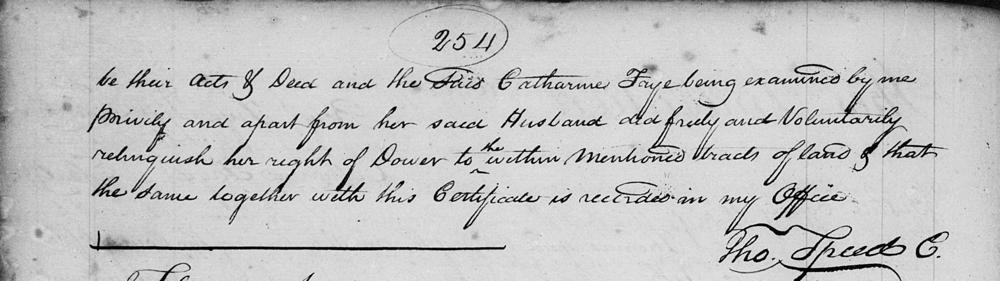 254
be their Acts & Deed and the Said Catharine Faye being examined by me
privily and apart from her said Husband did freely and Voluntarily
relinquish her right of Dower to the within Mentioned tracts of land & that
the same together with this Certificate is recorded in my Office
Tho. Speed C.